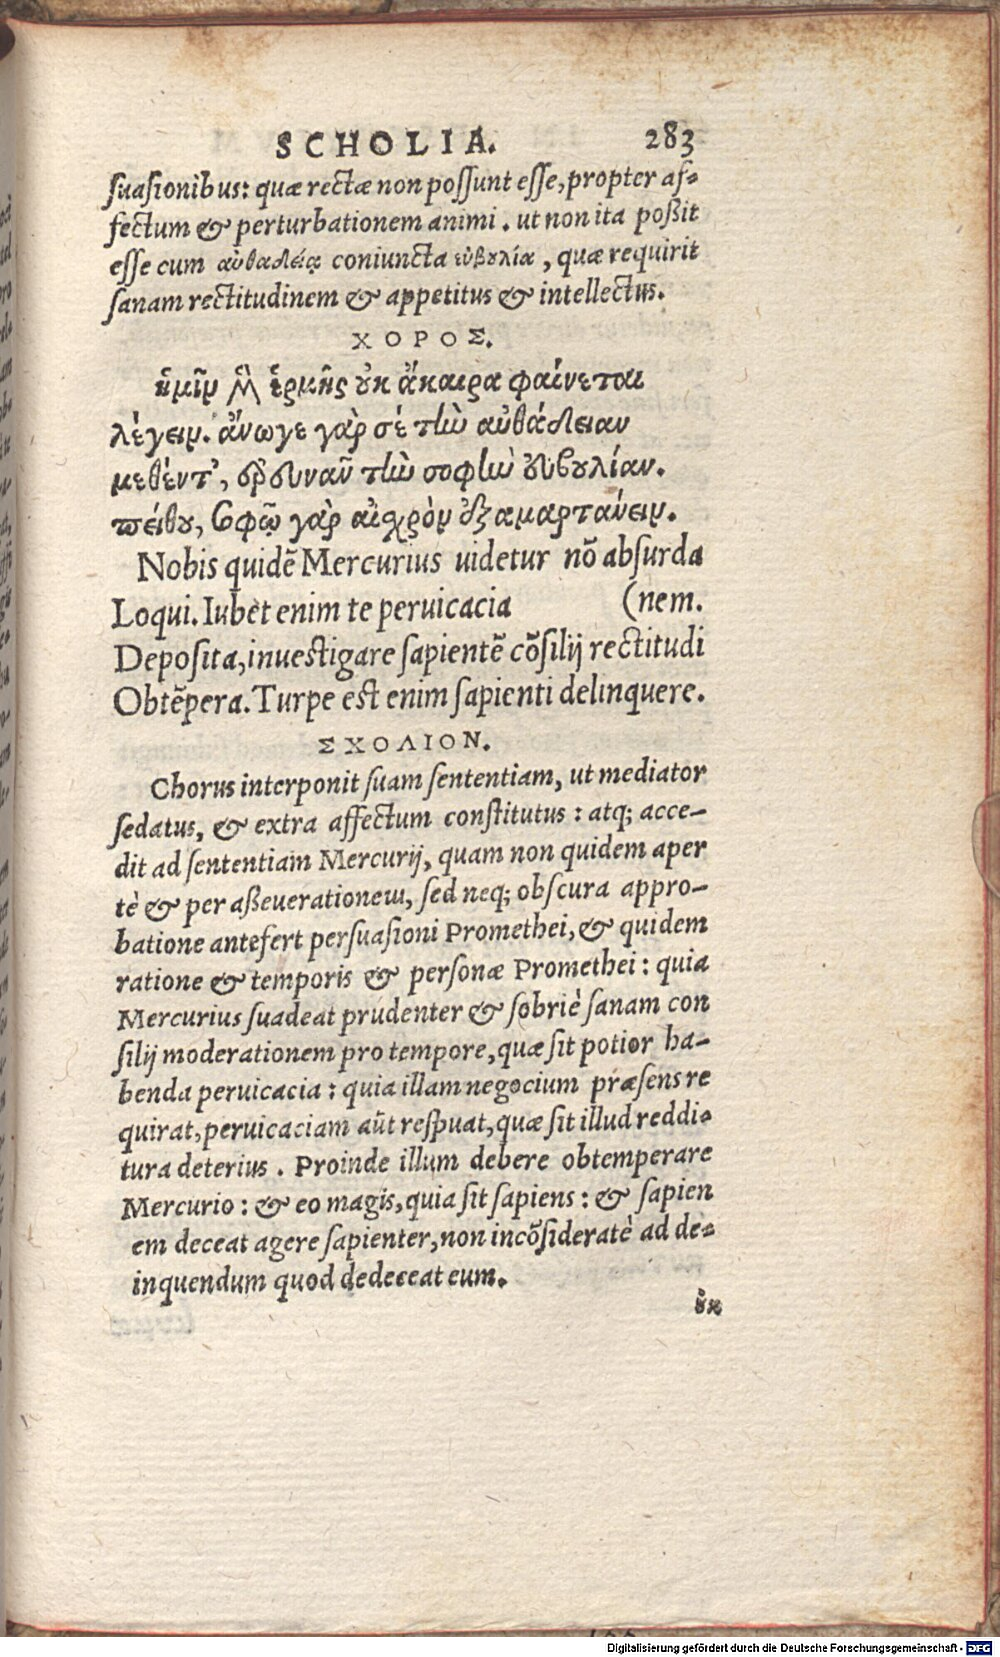 SCHOLIA. 283
suasionibus: quæ rectæ non possunt esse, propter af-
fectum & perturbationem animi. ut non ita poßit
esse cum αὐθαδείᾳ coniuncta εὐβουλία, quæ requirit
sanam rectitudinem & appetitus & intellectus.
ΧΟΡΟΣ.
ἡμῖν μὲν ἑρμῆς οὐκ ἄκαιρα φαίνεται
λέγειν. ἄνωγε γὰρ σέ τὴν αὐθάδειαν
μεθέντ’, ἐρευνᾶν τὴν σοφὴν εὐβουλίαν.
πείθου, σοφῷ γὰρ αἰσχρὸν ἐξαμαρτάνειν.
Nobis quidẽ Mercurius uidetur nõ absurda
Loqui. Iubet enim te peruicacia (nem.
Deposita, inuestigare sapientẽ cõsilij rectitudi
Obtẽpera. Turpe est enim sapienti delinquere.
ΣΧΟΛΙΟΝ.
Chorus interponit suam sententiam, ut mediator
sedatus, & extra affectum constitutus: atq; acce-
dit ad sententiam Mercurij, quam non quidem aper
tè & per aßeuerationem, sed neq; obscura appro-
batione antefert persuasioni Promethei, & quidem
ratione & temporis & personæ Promethei: quia
Mercurius suadeat prudenter & sobriè sanam con
silij moderationem pro tempore, quæ sit potior ha-
benda peruicacia: quia illam negocium præsens re
quirat, peruicaciam aũt respuat, quæ sit illud reddi-
tura deterius. Proinde illum debere obtemperare
Mercurio: & eo magis, quia sit sapiens: & sapien
em deceat agere sapienter, non incõsideratè ad de-
inquendum quod dedeceat eum.
οὐκ
Digitalisierung gefördert durch die Deutsche Forschungsgemeinschaft - DFG